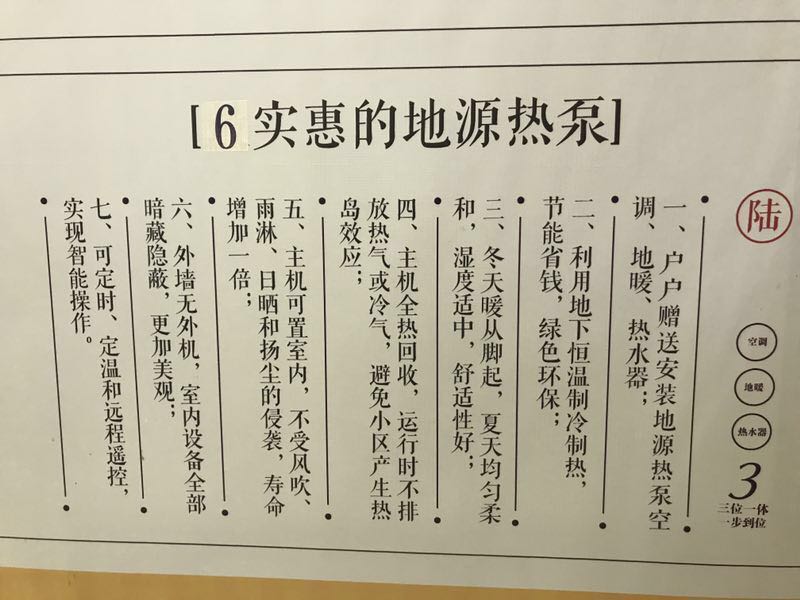 [6实惠的地源热泵]
陆
空调
地暖
热水器
3
三位一体
一步到位
一、户户赠送安装地源热泵空
调、地暖、热水器；
二、利用地下恒温制冷制热，
节能省钱，绿色环保；
三、冬天暖从脚起，夏天均匀柔
和，湿度适中，舒适性好；
四、主机全热回收，运行时不排
放热气或冷气，避免小区产生热
岛效应；
五、主机可置室内，不受风吹、
雨淋、日晒和扬尘的侵袭，寿命
增加一倍；
六、外墙无外机，室内设备全部
暗藏隐蔽，更加美观；
七、可定时、定温和远程遥控，
实现智能操作。